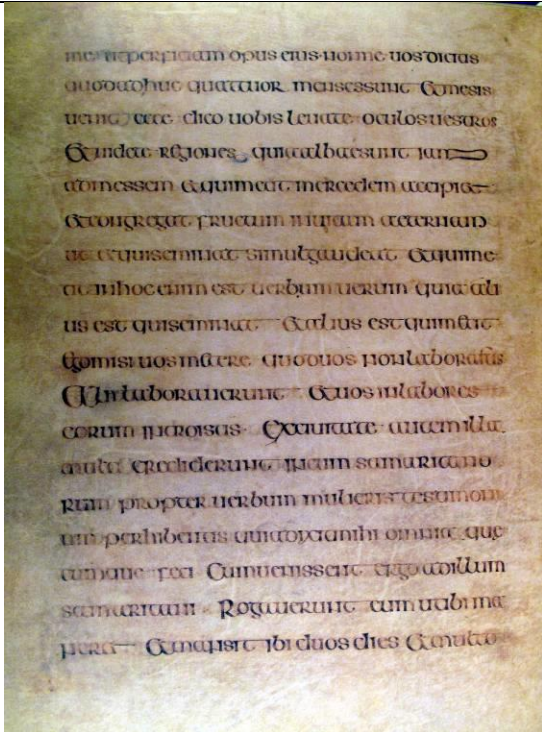 me ut perficiam opus eius nonne uos dicitis
quod adhuc quattuor menses sunt Et mesis
uenit ecce dico uobis leuate oculos uestros
Et uidete regiones quia albae sunt iam
ad messem et qui metit mercedem accipiet
Et congregat fructum in uitam aeternam
ut et qui seminat simul gaudeat Et qui me
tit in hoc enim est uerbum uerum quia ali
us est qui seminat Et alius est qui metit
Ego misi uos metere quod uos non laborastis
Alii laborauerunt Et uos in labores
eorum introistis Ex ciuitate autem illa
multi crediderunt in eum samaritano
rum propter uerbum mulieris testimoni
um perhibentis quia dixit mihi omnia que
cumque feci Cum uenissent ergo ad illum
samaritani Rogauerunt eum ut ibi ma
neret Et mansit ibi duos dies Et multo